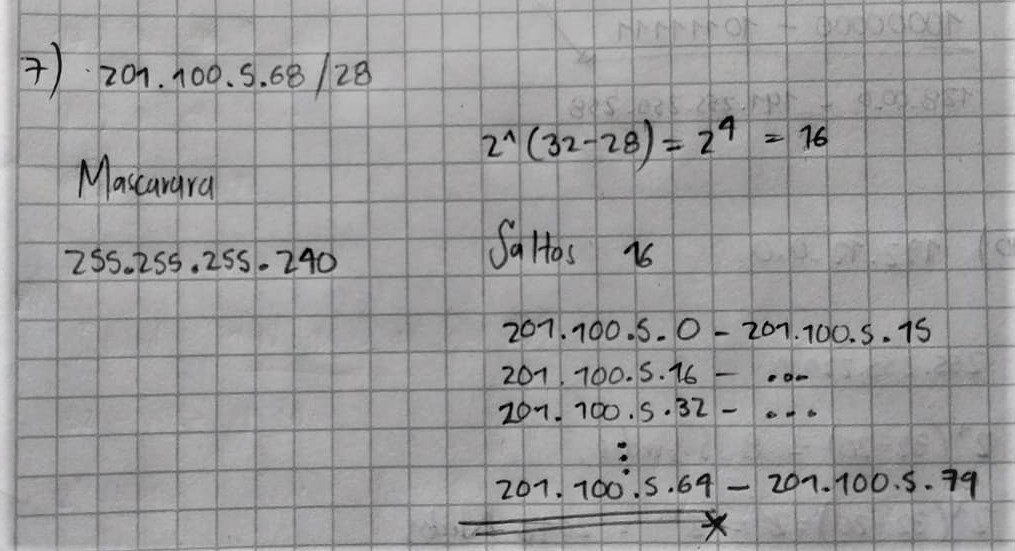 7) 201.100.5.68/28
2^(32-28) = 2⁴ = 16
Mascarara
255.255.255.240
Saltos 16
201.100.5.0 - 201.100.5.15
201.100.5.16 - ...
201.100.5.32 - ...
⋮
201.100.5.64 - 201.100.5.79